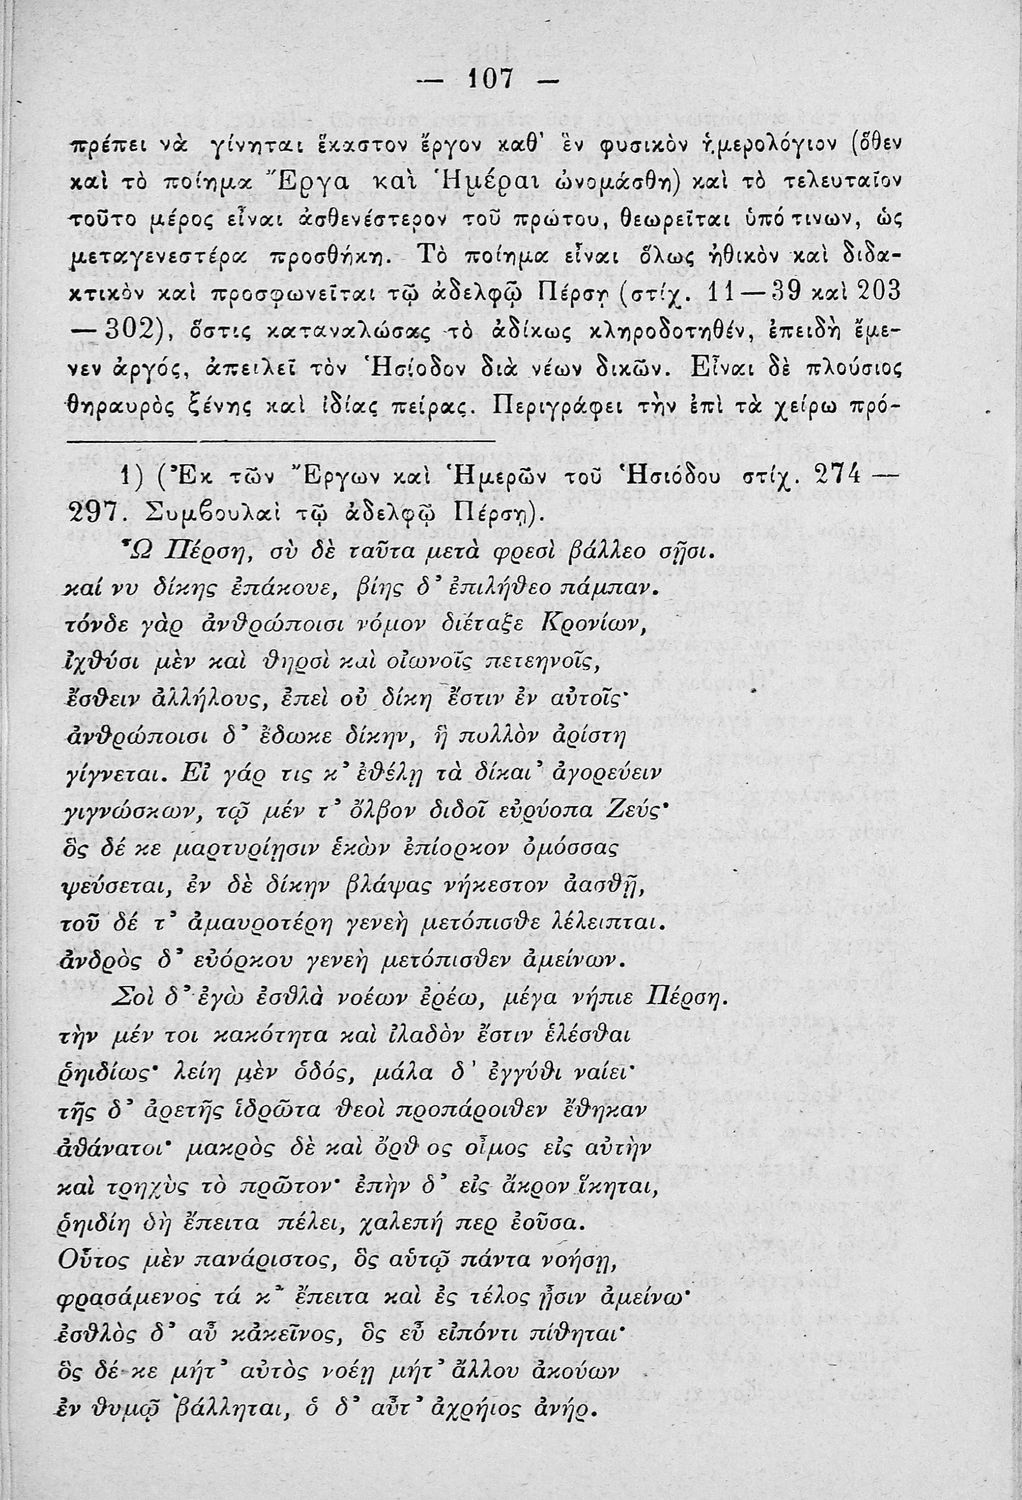 — 107 —
πρέπει νὰ γίνηται ἕκαστον ἔργον καθ' ἓν φυσικὸν ἡμερολόγιον (ὅθεν
καὶ τὸ ποίημα Ἔργα καὶ Ἡμέραι ὠνομάσθη) καὶ τὸ τελευταῖον
τοῦτο μέρος εἶναι ἀσθενέστερον τοῦ πρώτου, θεωρεῖται ὑπό τινων, ὡς
μεταγενεστέρα προσθήκη. Τὸ ποίημα εἶναι ὅλως ἠθικὸν καὶ διδα-
κτικὸν καὶ προσφωνεῖται τῷ ἀδελφῷ Πέρσῃ (στίχ. 11—39 καὶ 203
—302), ὅστις καταναλώσας τὸ ἀδίκως κληροδοτηθέν, ἐπειδὴ ἔμε-
νεν ἀργός, ἀπειλεῖ τὸν Ἡσίοδον διὰ νέων δικῶν. Εἶναι δὲ πλούσιος
θηραυρὸς ξένης καὶ ἰδίας πείρας. Περιγράφει τὴν ἐπὶ τὰ χείρω πρό-
1) (Ἐκ τῶν Ἔργων καὶ Ἡμερῶν τοῦ Ἡσιόδου στίχ. 274 —
297. Συμβουλαὶ τῷ ἀδελφῷ Πέρσῃ).
Ὦ Πέρση, σὺ δὲ ταῦτα μετὰ φρεσὶ βάλλεο σῇσι.
καί νυ δίκης ἐπάκουε, βίης δ' ἐπιλήθεο πάμπαν.
τόνδε γὰρ ἀνθρώποισι νόμον διέταξε Κρονίων,
ἰχθύσι μὲν καὶ θηρσὶ καὶ οἰωνοῖς πετεηνοῖς,
ἔσθειν ἀλλήλους, ἐπεὶ οὐ δίκη ἔστιν ἐν αὐτοῖς·
ἀνθρώποισι δ' ἔδωκε δίκην, ἣ πολλὸν ἀρίστη
γίγνεται. Εἰ γάρ τις κ' ἐθέλῃ τὰ δίκαι' ἀγορεύειν
γιγνώσκων, τῷ μέν τ' ὄλβον διδοῖ εὐρύοπα Ζεύς·
ὃς δέ κε μαρτυρίῃσιν ἑκὼν ἐπίορκον ὀμόσσας
ψεύσεται, ἐν δὲ δίκην βλάψας νήκεστον ἀασθῇ,
τοῦ δέ τ' ἀμαυροτέρη γενεὴ μετόπισθε λέλειπται.
ἀνδρὸς δ' εὐόρκου γενεὴ μετόπισθεν ἀμείνων.
Σοὶ δ' ἐγὼ ἐσθλὰ νοέων ἐρέω, μέγα νήπιε Πέρση.
τὴν μέν τοι κακότητα καὶ ἰλαδὸν ἔστιν ἑλέσθαι
ῥηιδίως· λείη μὲν ὁδός, μάλα δ' ἐγγύθι ναίει·
τῆς δ' ἀρετῆς ἱδρῶτα θεοὶ προπάροιθεν ἔθηκαν
ἀθάνατοι· μακρὸς δὲ καὶ ὄρθ ος οἶμος εἰς αὐτὴν
καὶ τρηχὺς τὸ πρῶτον· ἐπὴν δ' εἰς ἄκρον ἵκηται,
ῥηιδίη δὴ ἔπειτα πέλει, χαλεπή περ ἐοῦσα.
Οὗτος μὲν πανάριστος, ὃς αὑτῷ πάντα νοήσῃ,
φρασάμενος τά κ' ἔπειτα καὶ ἐς τέλος ᾖσιν ἀμείνω·
ἐσθλὸς δ' αὖ κἀκεῖνος, ὃς εὖ εἰπόντι πίθηται·
ὃς δέ κε μήτ' αὐτὸς νοέῃ μήτ' ἄλλου ἀκούων
ἐν θυμῷ βάλληται, ὁ δ' αὖτ' ἀχρήιος ἀνήρ.